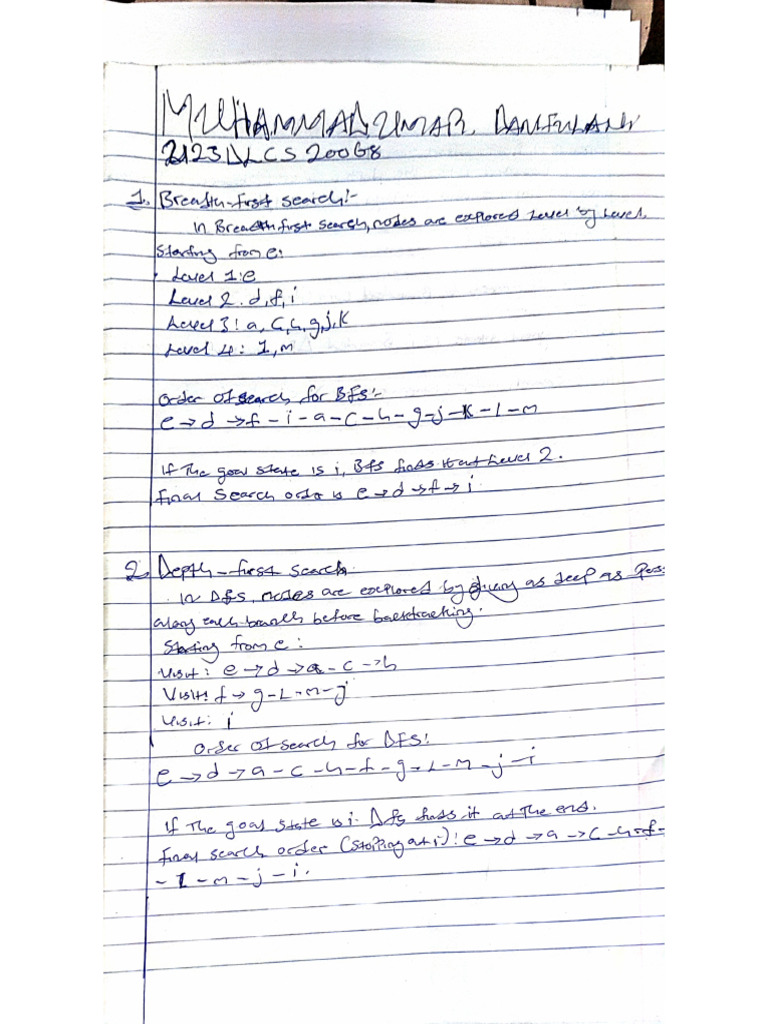 MUHAMMAD UMAR DANFULANI
2123DLCS20068
1. Breadth-first search:-
In Breadth first search, nodes are explored Level by Level.
Starting from e:
Level 1: e
Level 2. d, f, i
Level 3: a, c, h, g, j, K
Level 4: l, m
Order of search for BFS:-
e → d → f - i - a - c - h - g - j - K - l - m
If the goal state is i, Bfs finds it at Level 2.
final Search order is e → d → f → i
2. Depth-first search
In Dfs, nodes are explored by going as deep as
along each branch before backtracking.
Starting from e:
Visit: e → d → a - c → h
Visit: f → g - L - m - j
Visit: i
Order of search for DFS:
e → d → a - c - h - f - g - L - m - j - i
If the goal state is i. Dfs finds it at the end.
final search order (stopping at i): e → d → a → c - h - f -
- l - m - j - i.